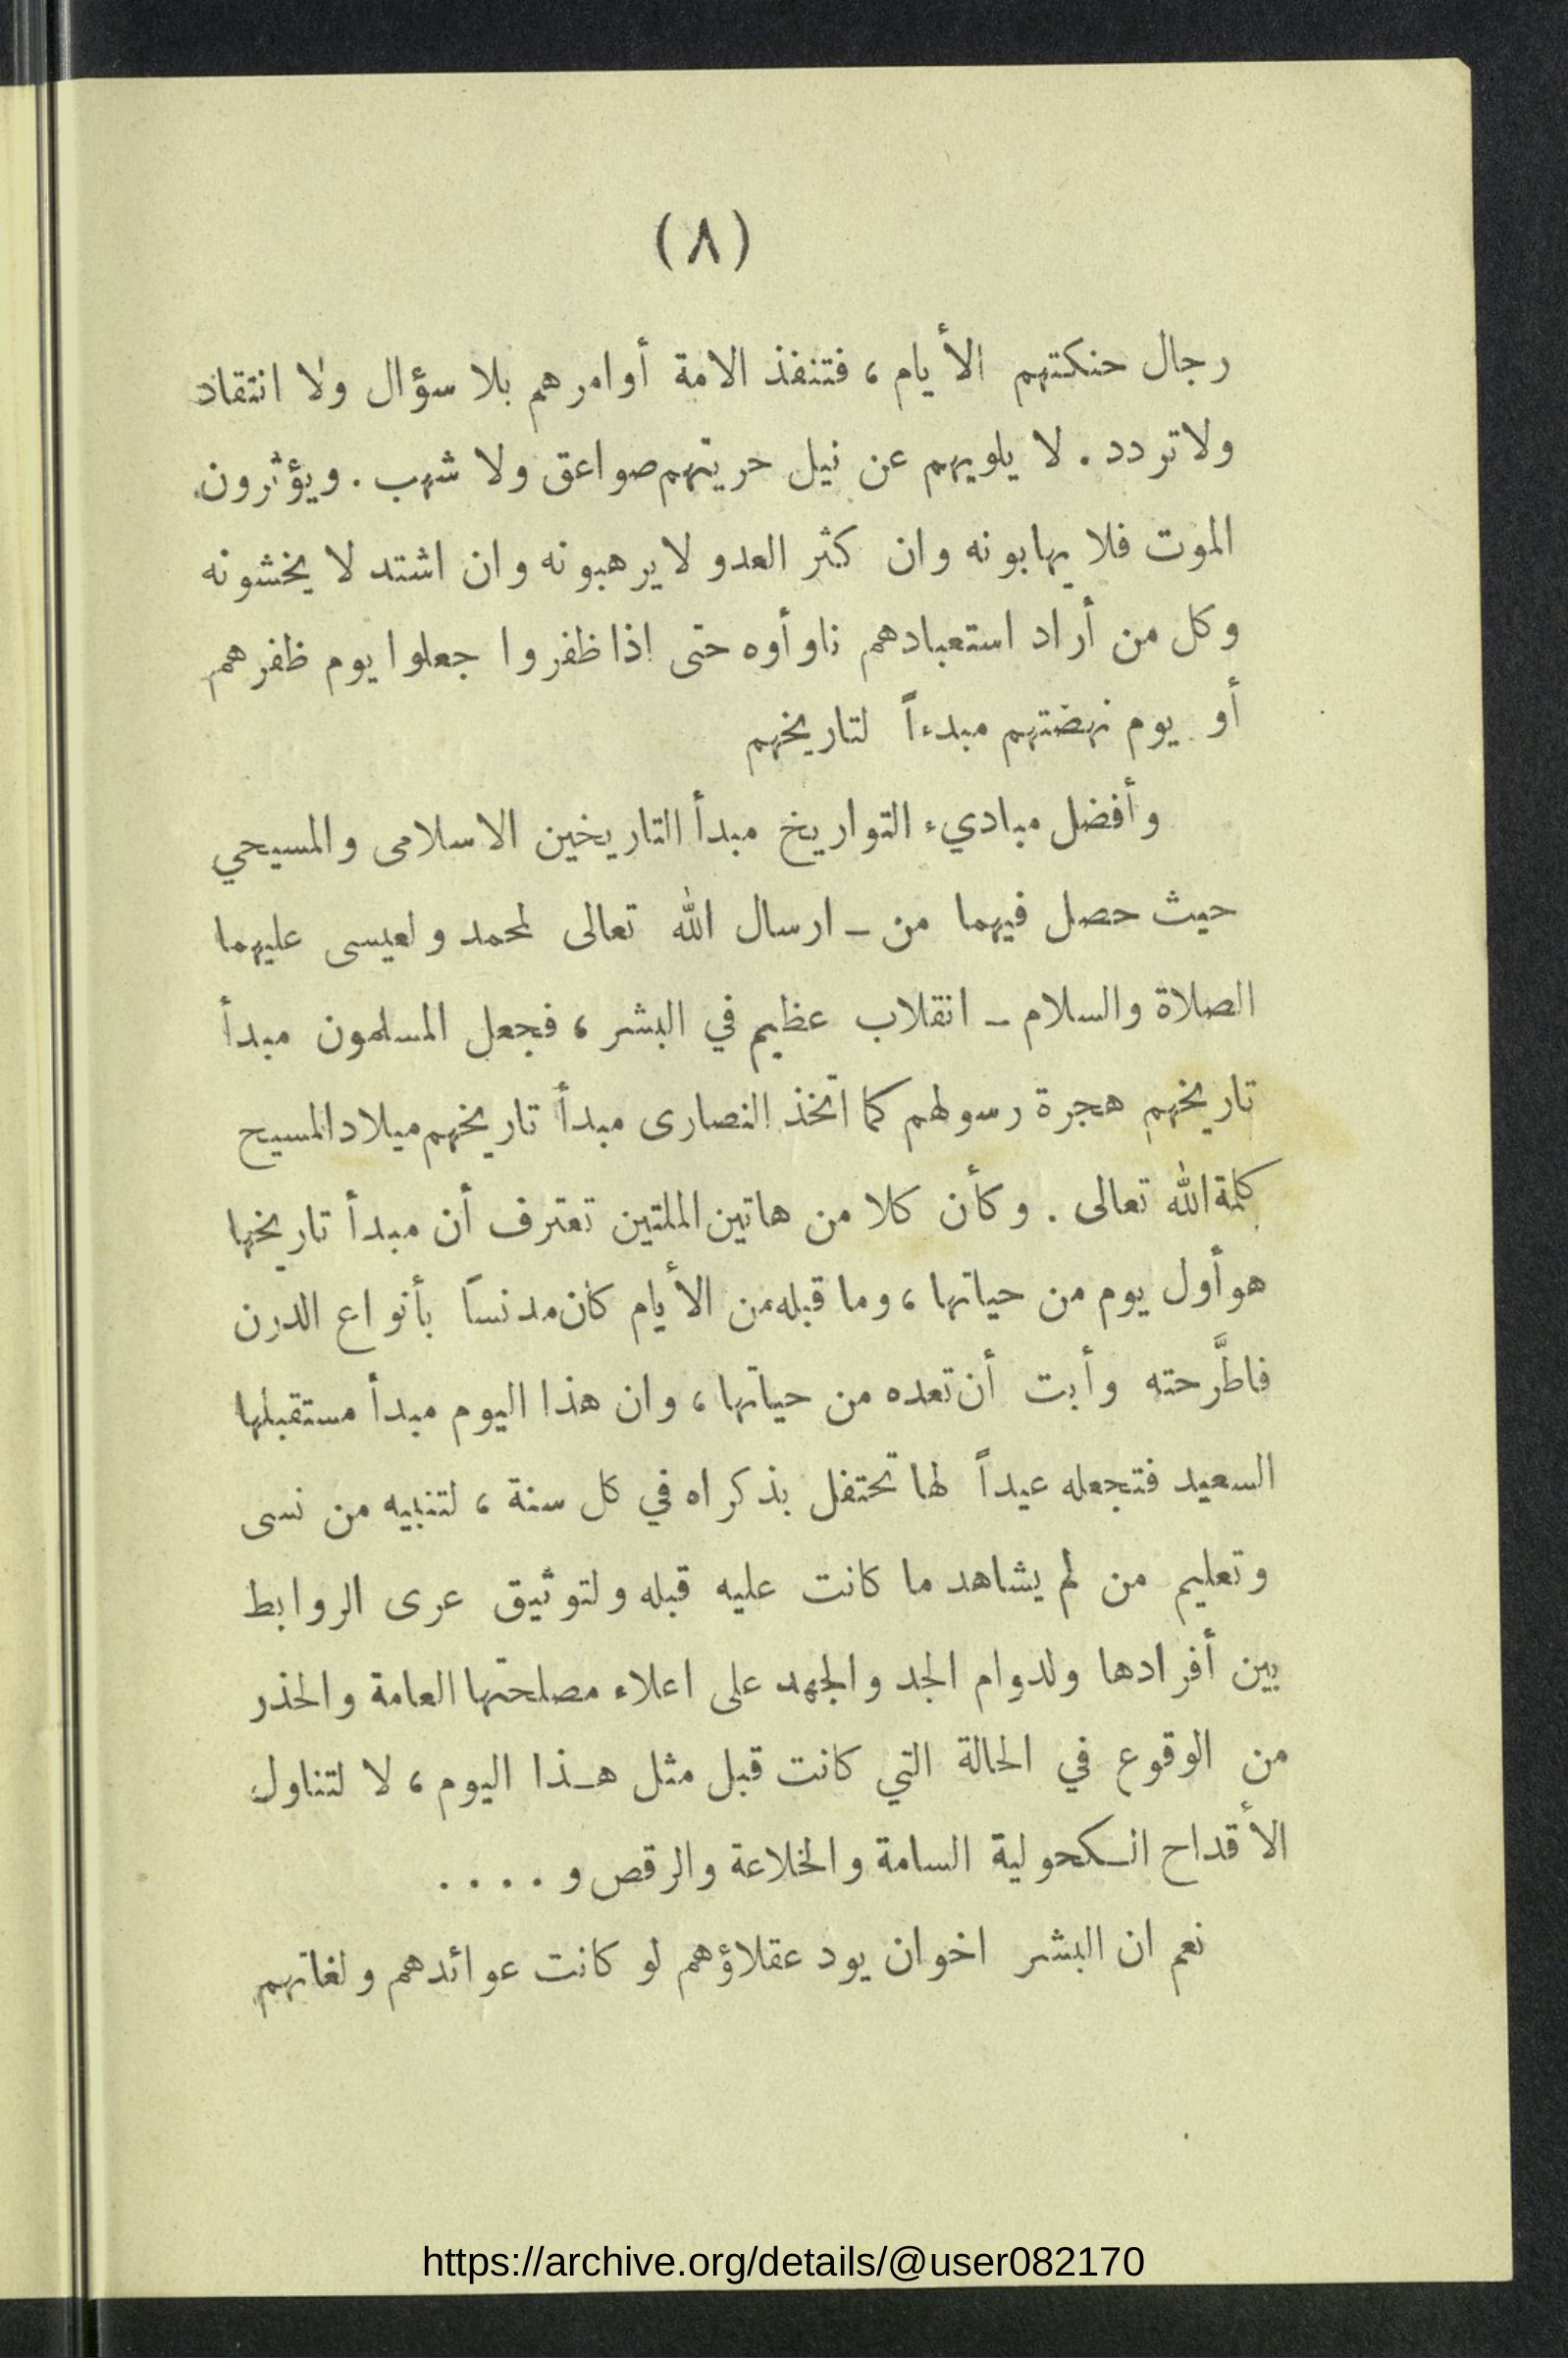 (٨)
رجال حنكتهم الأيام ، فتنفذ الامة أوامرهم بلا سؤال ولا انتقاد
ولا تردد . لا يلويهم عن نيل حريتهم صواعق ولا شهب . ويؤثرون
الموت فلا يهابونه وان كثر العدو لا يرهبونه وان اشتد لا يخشونه
وكل من أراد استعبادهم ناوأوه حتى اذا ظفروا جعلوا يوم ظفرهم
أو يوم نهضتهم مبدءاً لتاريخهم
وأفضل مباديء التواريخ مبدأ التاريخين الاسلامى والمسيحي
حيث حصل فيهما من ــ ارسال الله تعالى لمحمد ولعيسى عليهما
الصلاة والسلام ــ انقلاب عظيم في البشر ، فجعل المسلمون مبدأ
تاريخهم هجرة رسولهم كما اتخذ النصارى مبدأ تاريخهم ميلاد المسيح
كلمة الله تعالى . وكأن كلا من هاتين الملتين تعترف أن مبدأ تاريخها
هو أول يوم من حياتها ، وما قبله من الأيام كان مدنساً بأنواع الدرن
فاطَّرحته وأبت أن تعده من حياتها ، وان هذا اليوم مبدأ مستقبلها
السعيد فتجعله عيداً لها تحتفل بذكراه في كل سنة ، لتنبيه من نسى
وتعليم من لم يشاهد ما كانت عليه قبله ولتوثيق عرى الروابط
بين أفرادها ولدوام الجد والجهد على اعلاء مصلحتها العامة والحذر
من الوقوع في الحالة التي كانت قبل مثل هـذا اليوم ، لا لتناول
الأقداح الـكحولية السامة والخلاعة والرقص و . . . .
نعم ان البشر اخوان يود عقلاؤهم لو كانت عوائدهم ولغاتهم
https://archive.org/details/@user082170